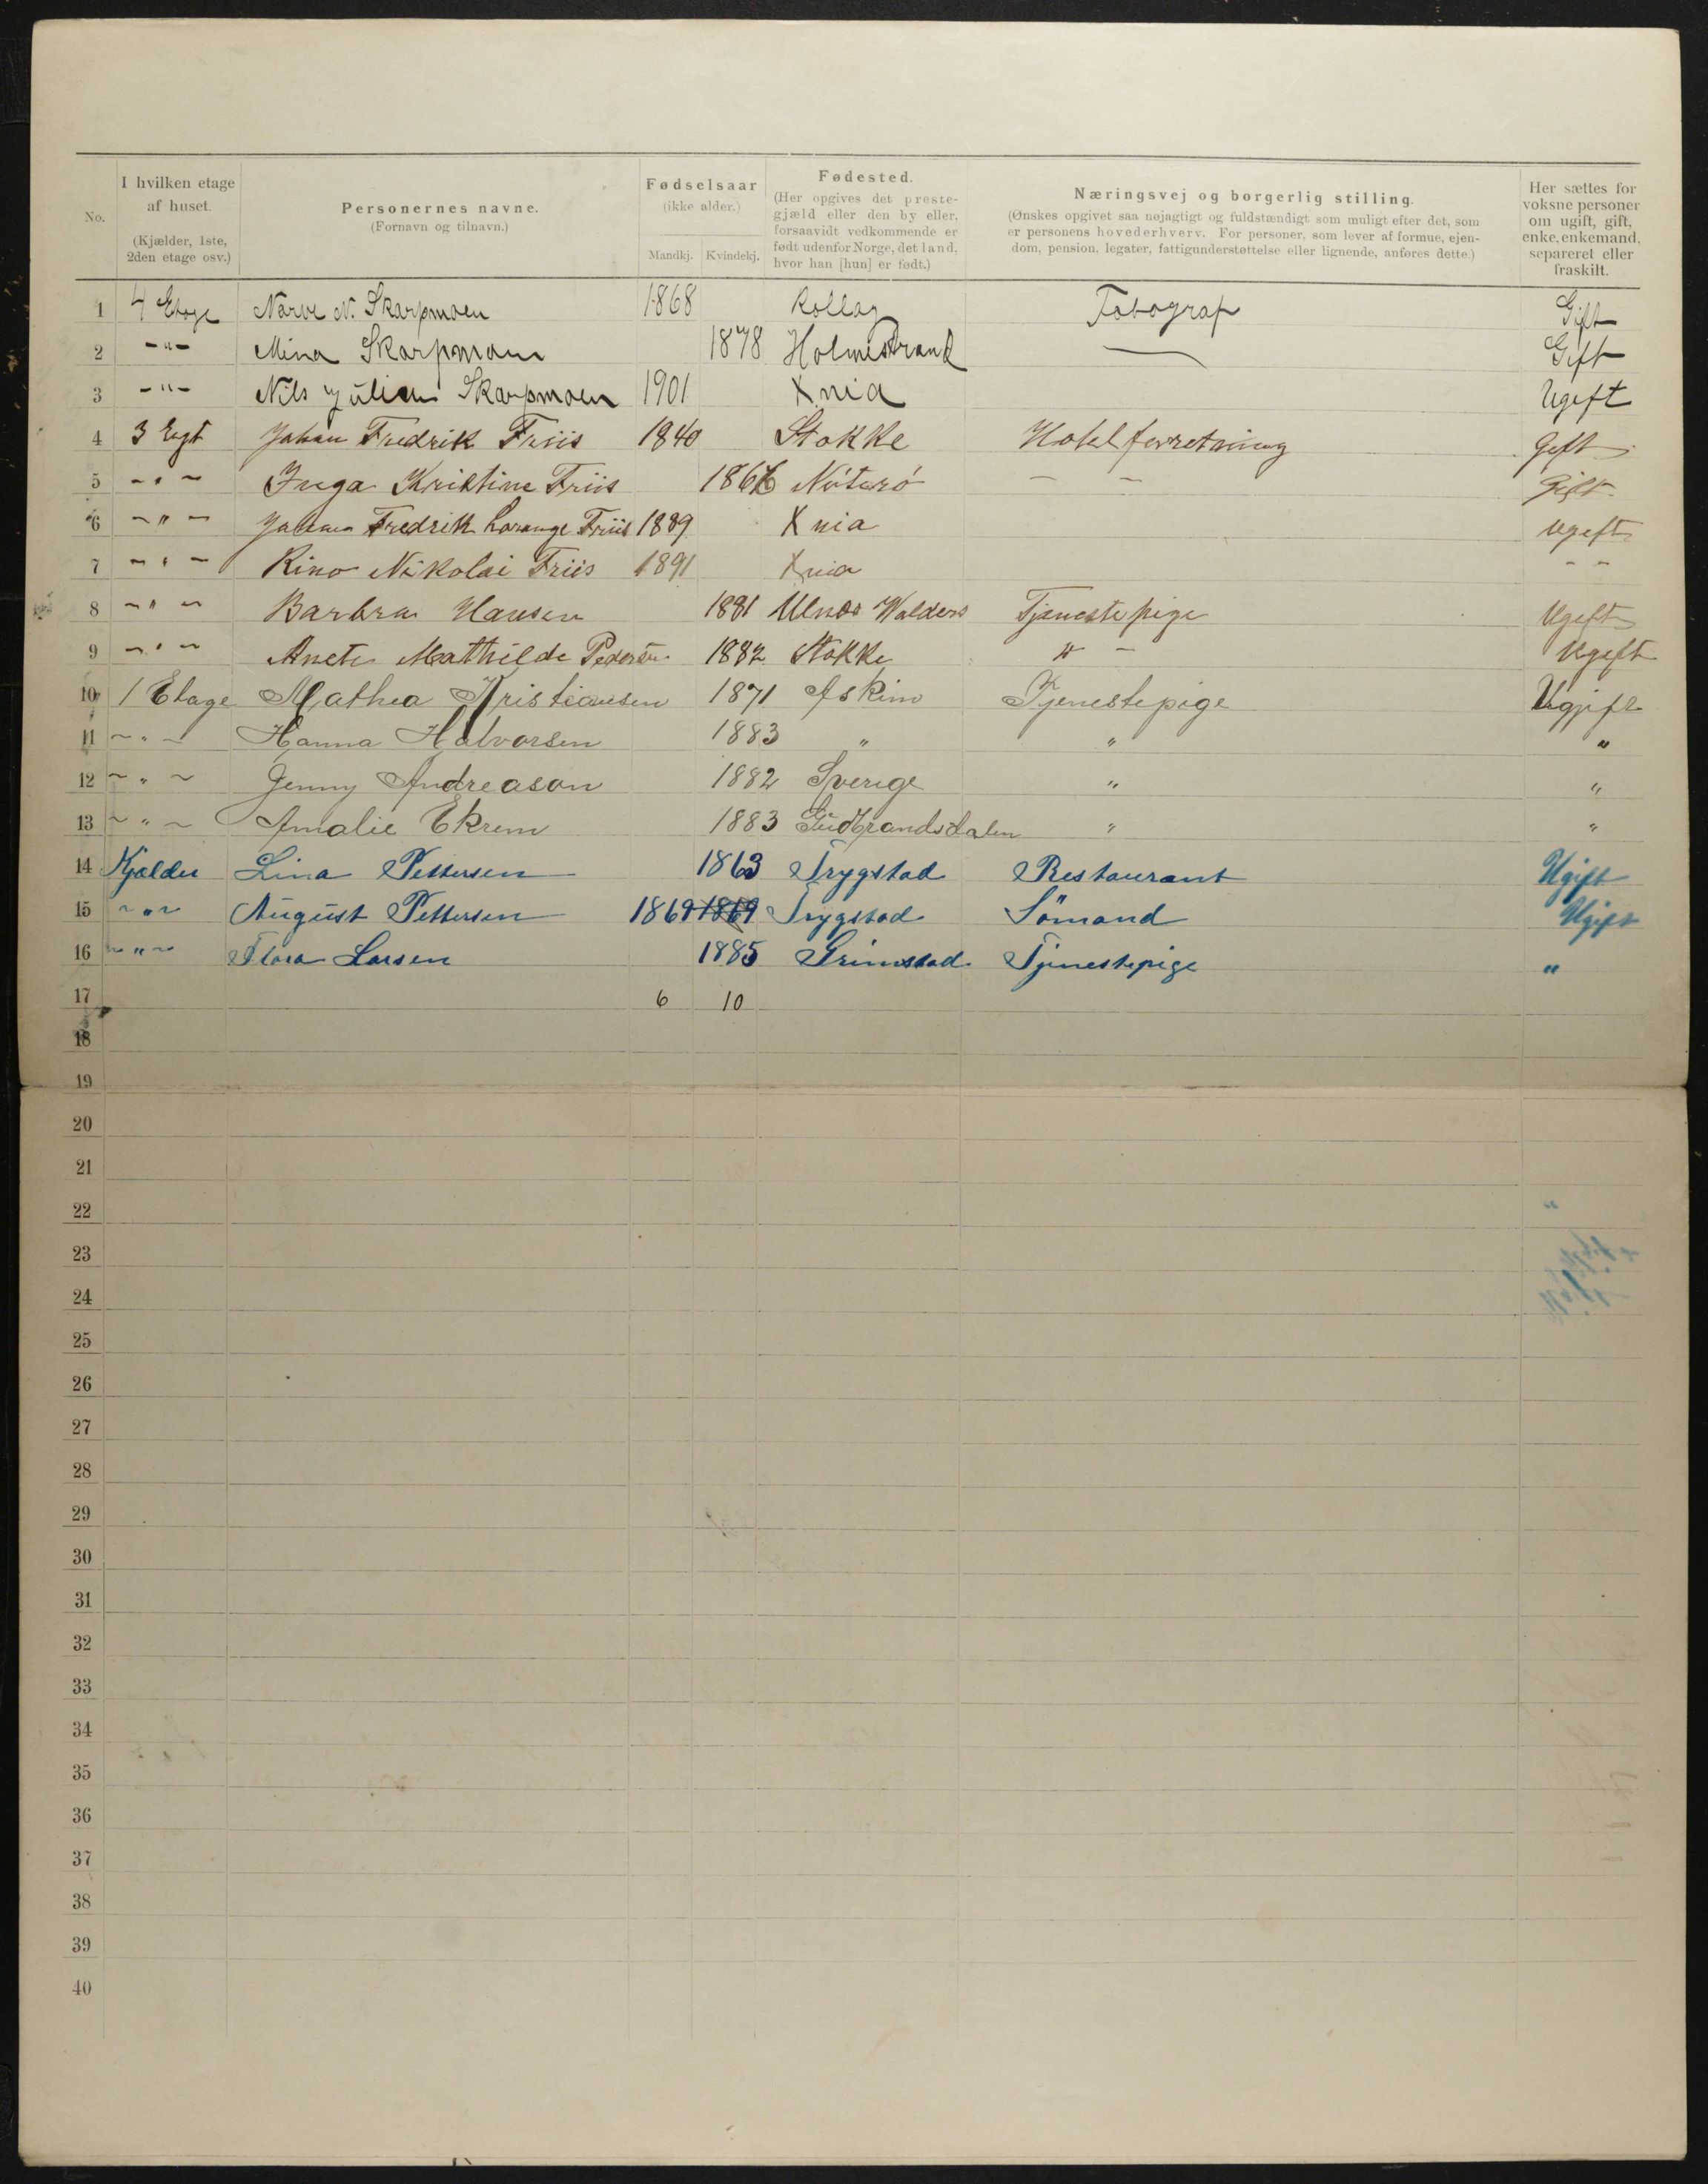 No. I hvilken etage af huset. (Kjælder, 1ste, 2den etage osv.) Personernes navne. (Fornavn og tilnavn.) Fødselsaar (ikke alder.) Mandkj. Kvindekj. Fødested. (Her opgives det prestegjæld eller den by eller, forsaavidt vedkommende er født udenfor Norge, det land, hvor han [hun] er født.) Næringsvej og borgerlig stilling. (Ønskes opgivet saa nøjagtigt og fuldstændigt som muligt efter det, som er personens hovederhverv. For personer, som lever af formue, ejendom, pension, legater, fattigunderstøttelse eller lignende, anføres dette.) Her sættes for voksne personer om ugift, gift, enke, enkemand, separeret eller fraskilt.
1 4 Etage Narve N. Skarpmoen 1868 Rollag Fotograf Gift
2 -"- Mina Skarpmoen 1878 Holmestrand — Gift
3 -"- Nils Julian Skarpmoen 1901 Xnia Ugift
4 3 Etgt Johan Fredrik Friis 1840 Stokke Hotelforretning Gift
5 -"- Inga Kristine Friis 1866 Nöterö - - Gift
6 -"- Johan Fredrik Lorange Friis 1889 Xnia Ugift
7 -"- Rino Nikolai Friis 1891 Xnia - -
8 -"- Barbra Hansen 1881 Ulnes Walders Tjenestepige Ugift
9 -"- Anete Mathilde Pedersen 1882 Stokke " - Ugift
10 1 Etage Mathea Kristiansen 1871 Askim Tjenestepige Ugift
11 ~"~ Hanna Halvorsen 1883 " " "
12 ~"~ Jenny Andreason 1882 Sverige " "
13 ~"~ Amalie Ekrem 1883 Gudbrandsdalen " "
14 Kjælder Lina Pettersen 1863 Trygstad Restaurant Ugift
15 ~"~ August Pettersen 1869 1869 Trygstad Sömand Ugift
16 ~"~ Flora Larsen 1885 Grimstad Tjenestepige "
17 6 10
18
19
20
21
22
23
24
25
26
27
28
29
30
31
32
33
34
35
36
37
38
39
40